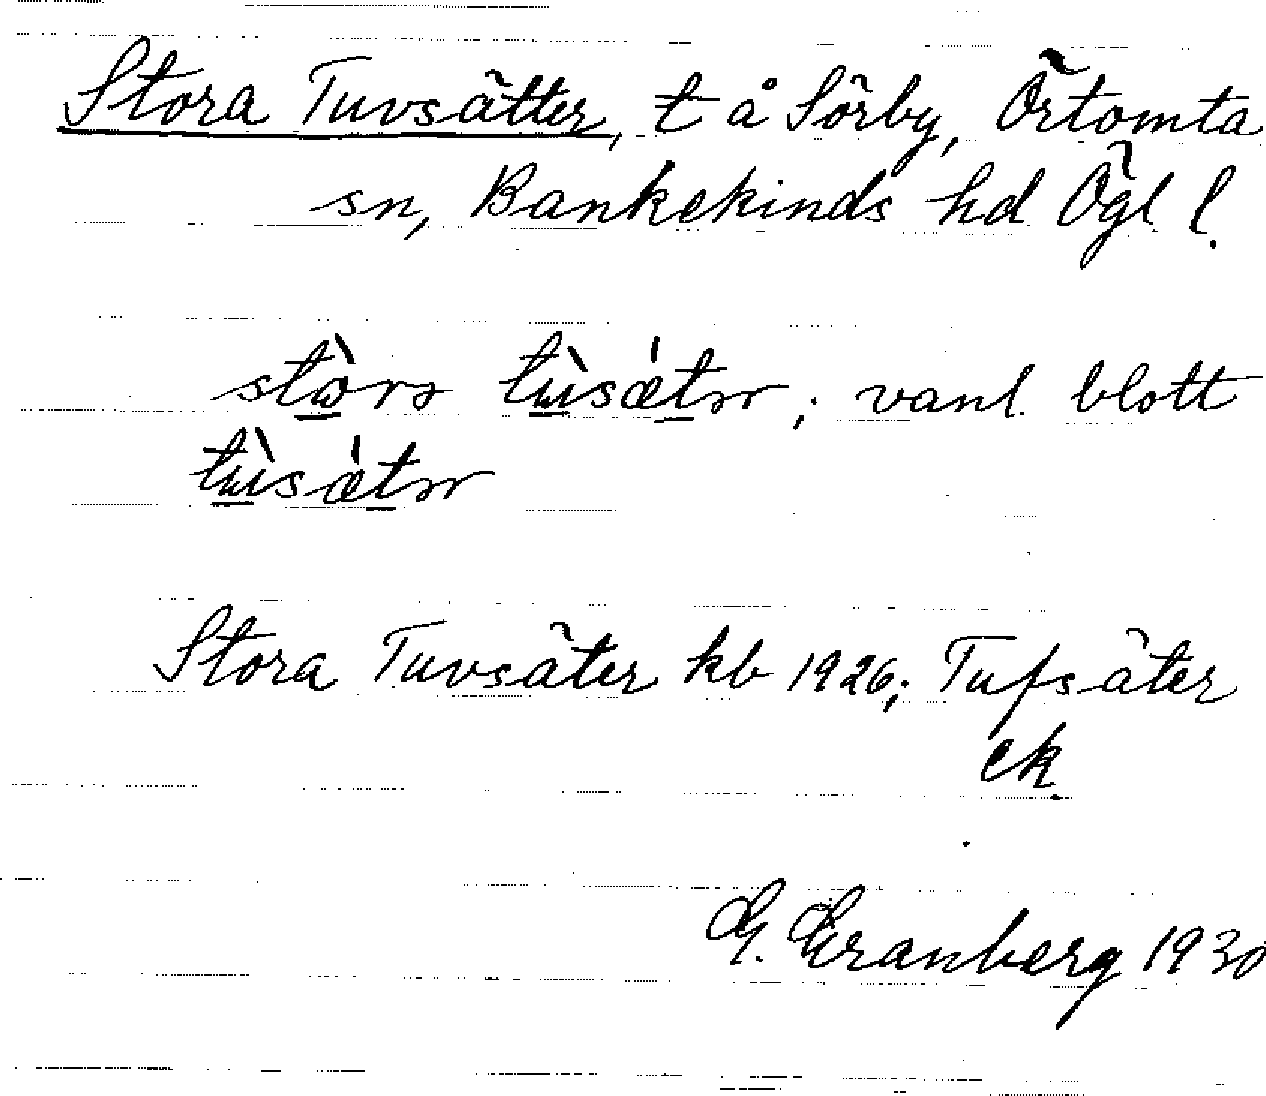 Stora Tuvsätter, t å Sörby, Örtomta
sn, Bankekinds hd Ögl l.
vanl. blott
Stora Tuvsäter kb 1926; Tufsäter
ek.
G. Granberg 1930